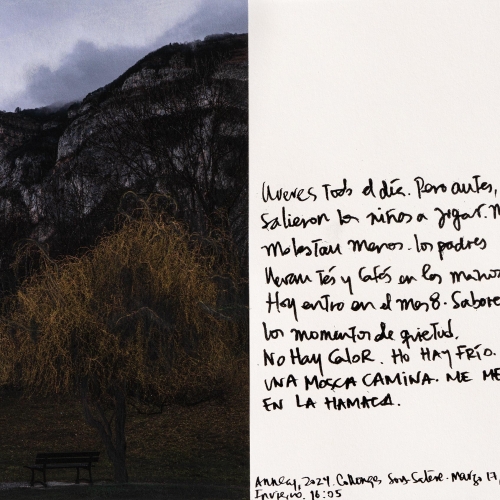 todo el día. Pero antes,
Salieron los niños a jugar. M
Molestan menos. los padres
llevan tés y cafés en las manos
Hoy entro en el mes 8. Sabore
los momentos de quietud.
No Hay CALOR. No HAY FRÍO.
UNA MOSCA CAMINA. ME ME
EN LA HAMACA.
Annecy, 2024. Collonges Sous Salève. Marzo 17
Invierno. 16:05